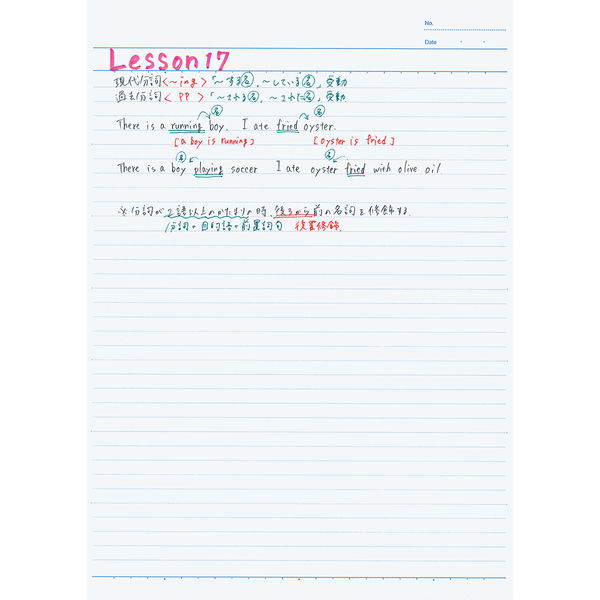 No.
Date
Lesson 17
現代分詞<~ing>「~する名,~している名」受動
過去分詞< PP >「~される名,~された名」受動
名 名
There is a running boy. I ate fried oyster.
[a boy is running] [oyster is fried]
名 名
There is a boy playing soccer I ate oyster fried with olive oil.
※分詞が2語以上のかたまりの時、後ろから前の名詞を修飾する.
分詞+目的語+前置詞句 後置修飾.